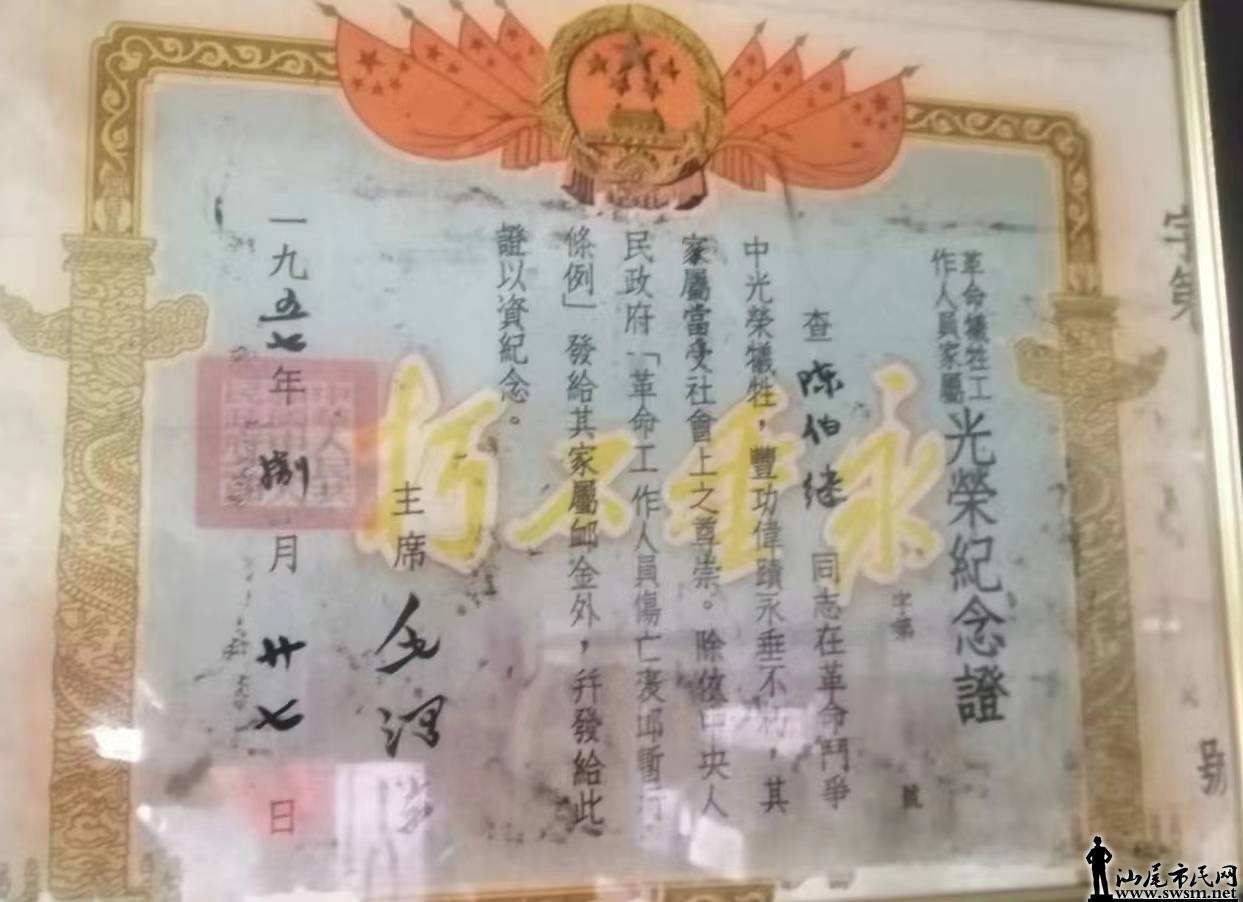 革命犧牲工
作人員家屬
光榮紀念證
字第 號
查陈伯继同志在革命鬥爭
中光榮犧牲，豐功偉蹟永垂不朽，其
家屬當受社會上之尊崇。除依中央人
民政府「革命工作人員傷亡褒邺暫行
條例」發給其家屬邺金外，并發給此
證以資紀念。
主席毛澤东
一九五七年捌月廿七日
永垂不朽
字第 號
汕尾市民网
www.swsm.net